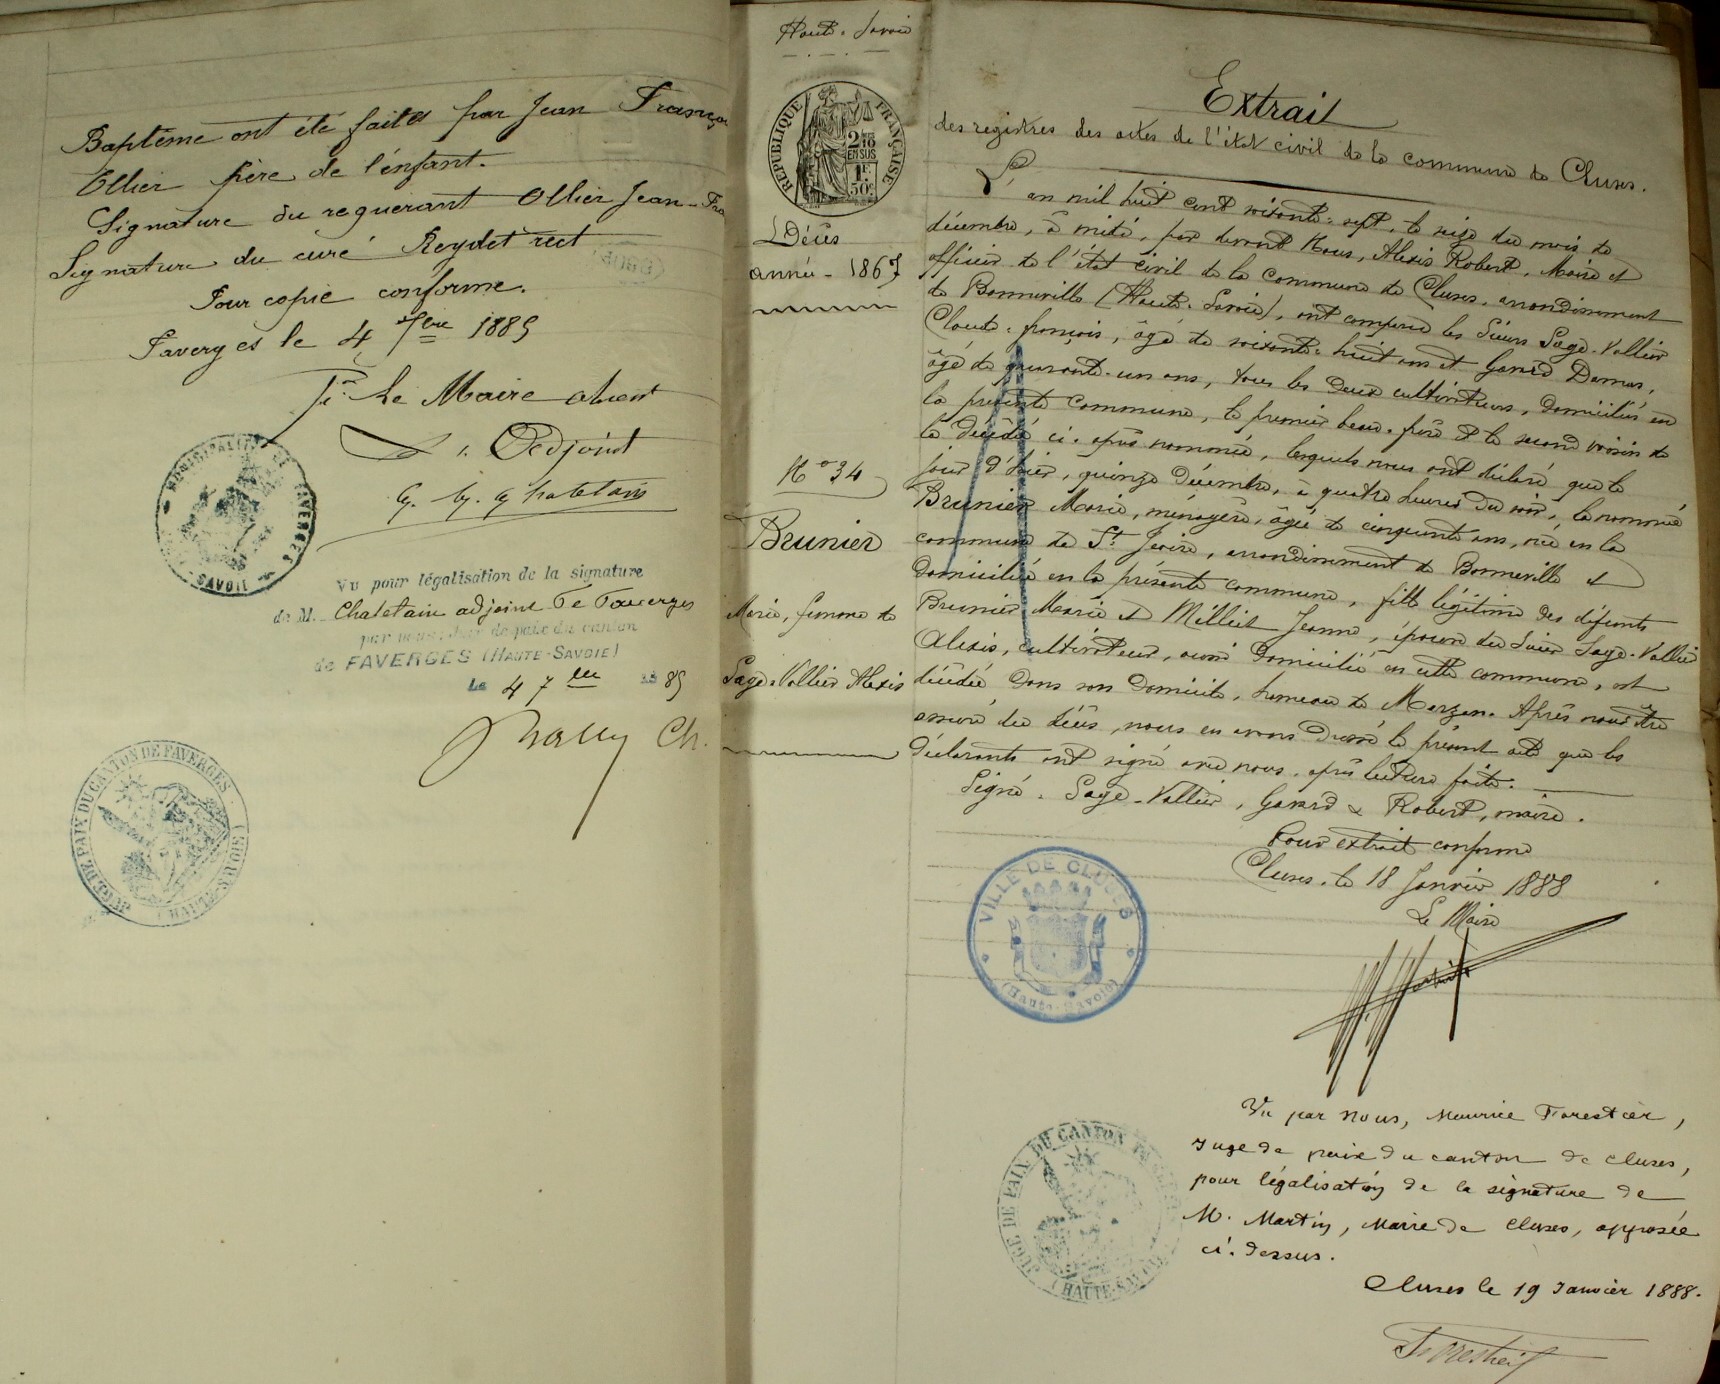 Baptême ont été faites par Jean Françoi
Ollier père de l'enfant.
Signature du requerant Ollier Jean-Fra
Signature du curé Reydet rect
Pour copie conforme.
Faverges le 4 7bre 1885
Pr Le Maire absent
L'Adjoint
MUNICIPALITÉ DE FAVERGES
SAVOIE
Vu pour légalisation de la signature
de M. Chatelain adjoint de Faverges
par nous, Juge de paix du canton
de FAVERGES (HAUTE-SAVOIE)
Le 4 7bre 1885
JUGE DE PAIX DU CANTON DE FAVERGES
(HAUTE-SAVOIE)
Haute-Savoie
RÉPUBLIQUE FRANÇAISE
2/10
EN SUS
1F.
50c.
Décès
année - 1867
N° 34
Brunier
Marie, femme de
Sage-Vallier Alexis
Extrait
des registres des actes de l'état civil de la commune de Cluses.
L'an mil huit cent soixante-sept, le seize du mois de
décembre, à midi, par devant Nous, Alexis Robert, Maire et
officier de l'état civil de la commune de Cluses, arrondissement
de Bonneville (Haute-Savoie), ont comparu les sieurs Sage-Vallier
Claude-françois, âgé de soixante-huit ans et Gavard Damas,
âgé de quarante-un ans, tous les deux cultivateurs, domiciliés en
la présente commune, le premier beau-père et le second voisin de
la décédée ci-après nommée, lesquels nous ont déclaré que le
jour d'hier, quinze décembre, à quatre heures du soir, la nommée
Brunier Marie, ménagère, âgée de cinquante ans, née en la
commune de St Jeoire, arrondissement de Bonneville et
domiciliée en la présente commune, fille légitime des défunts
Brunier Marie et Millict Jeanne, épouse du sieur Sage-Vallier
Alexis, cultivateur, aussi domicilié en cette commune, est
décédée dans son domicile, hameau de Marzan. Après nous être
assuré du décès, nous en avons dressé le présent acte que les
déclarants ont signé avec nous, après lecture faite.
Signé. Sage-Vallier, Gavard & Robert, maire.
Pour extrait conforme
Cluses, le 18 Janvier 1888
Le Maire
VILLE DE CLUSES
(Haute-Savoie)
Vu par nous, Maurice Forestier,
Juge de paix du canton de Cluses,
pour légalisation de la signature de
M. Martin, Maire de Cluses, apposée
ci-dessus.
Cluses le 19 Janvier 1888.
Forestier
JUGE DE PAIX DU CANTON DE
(HAUTE-SAVOIE)